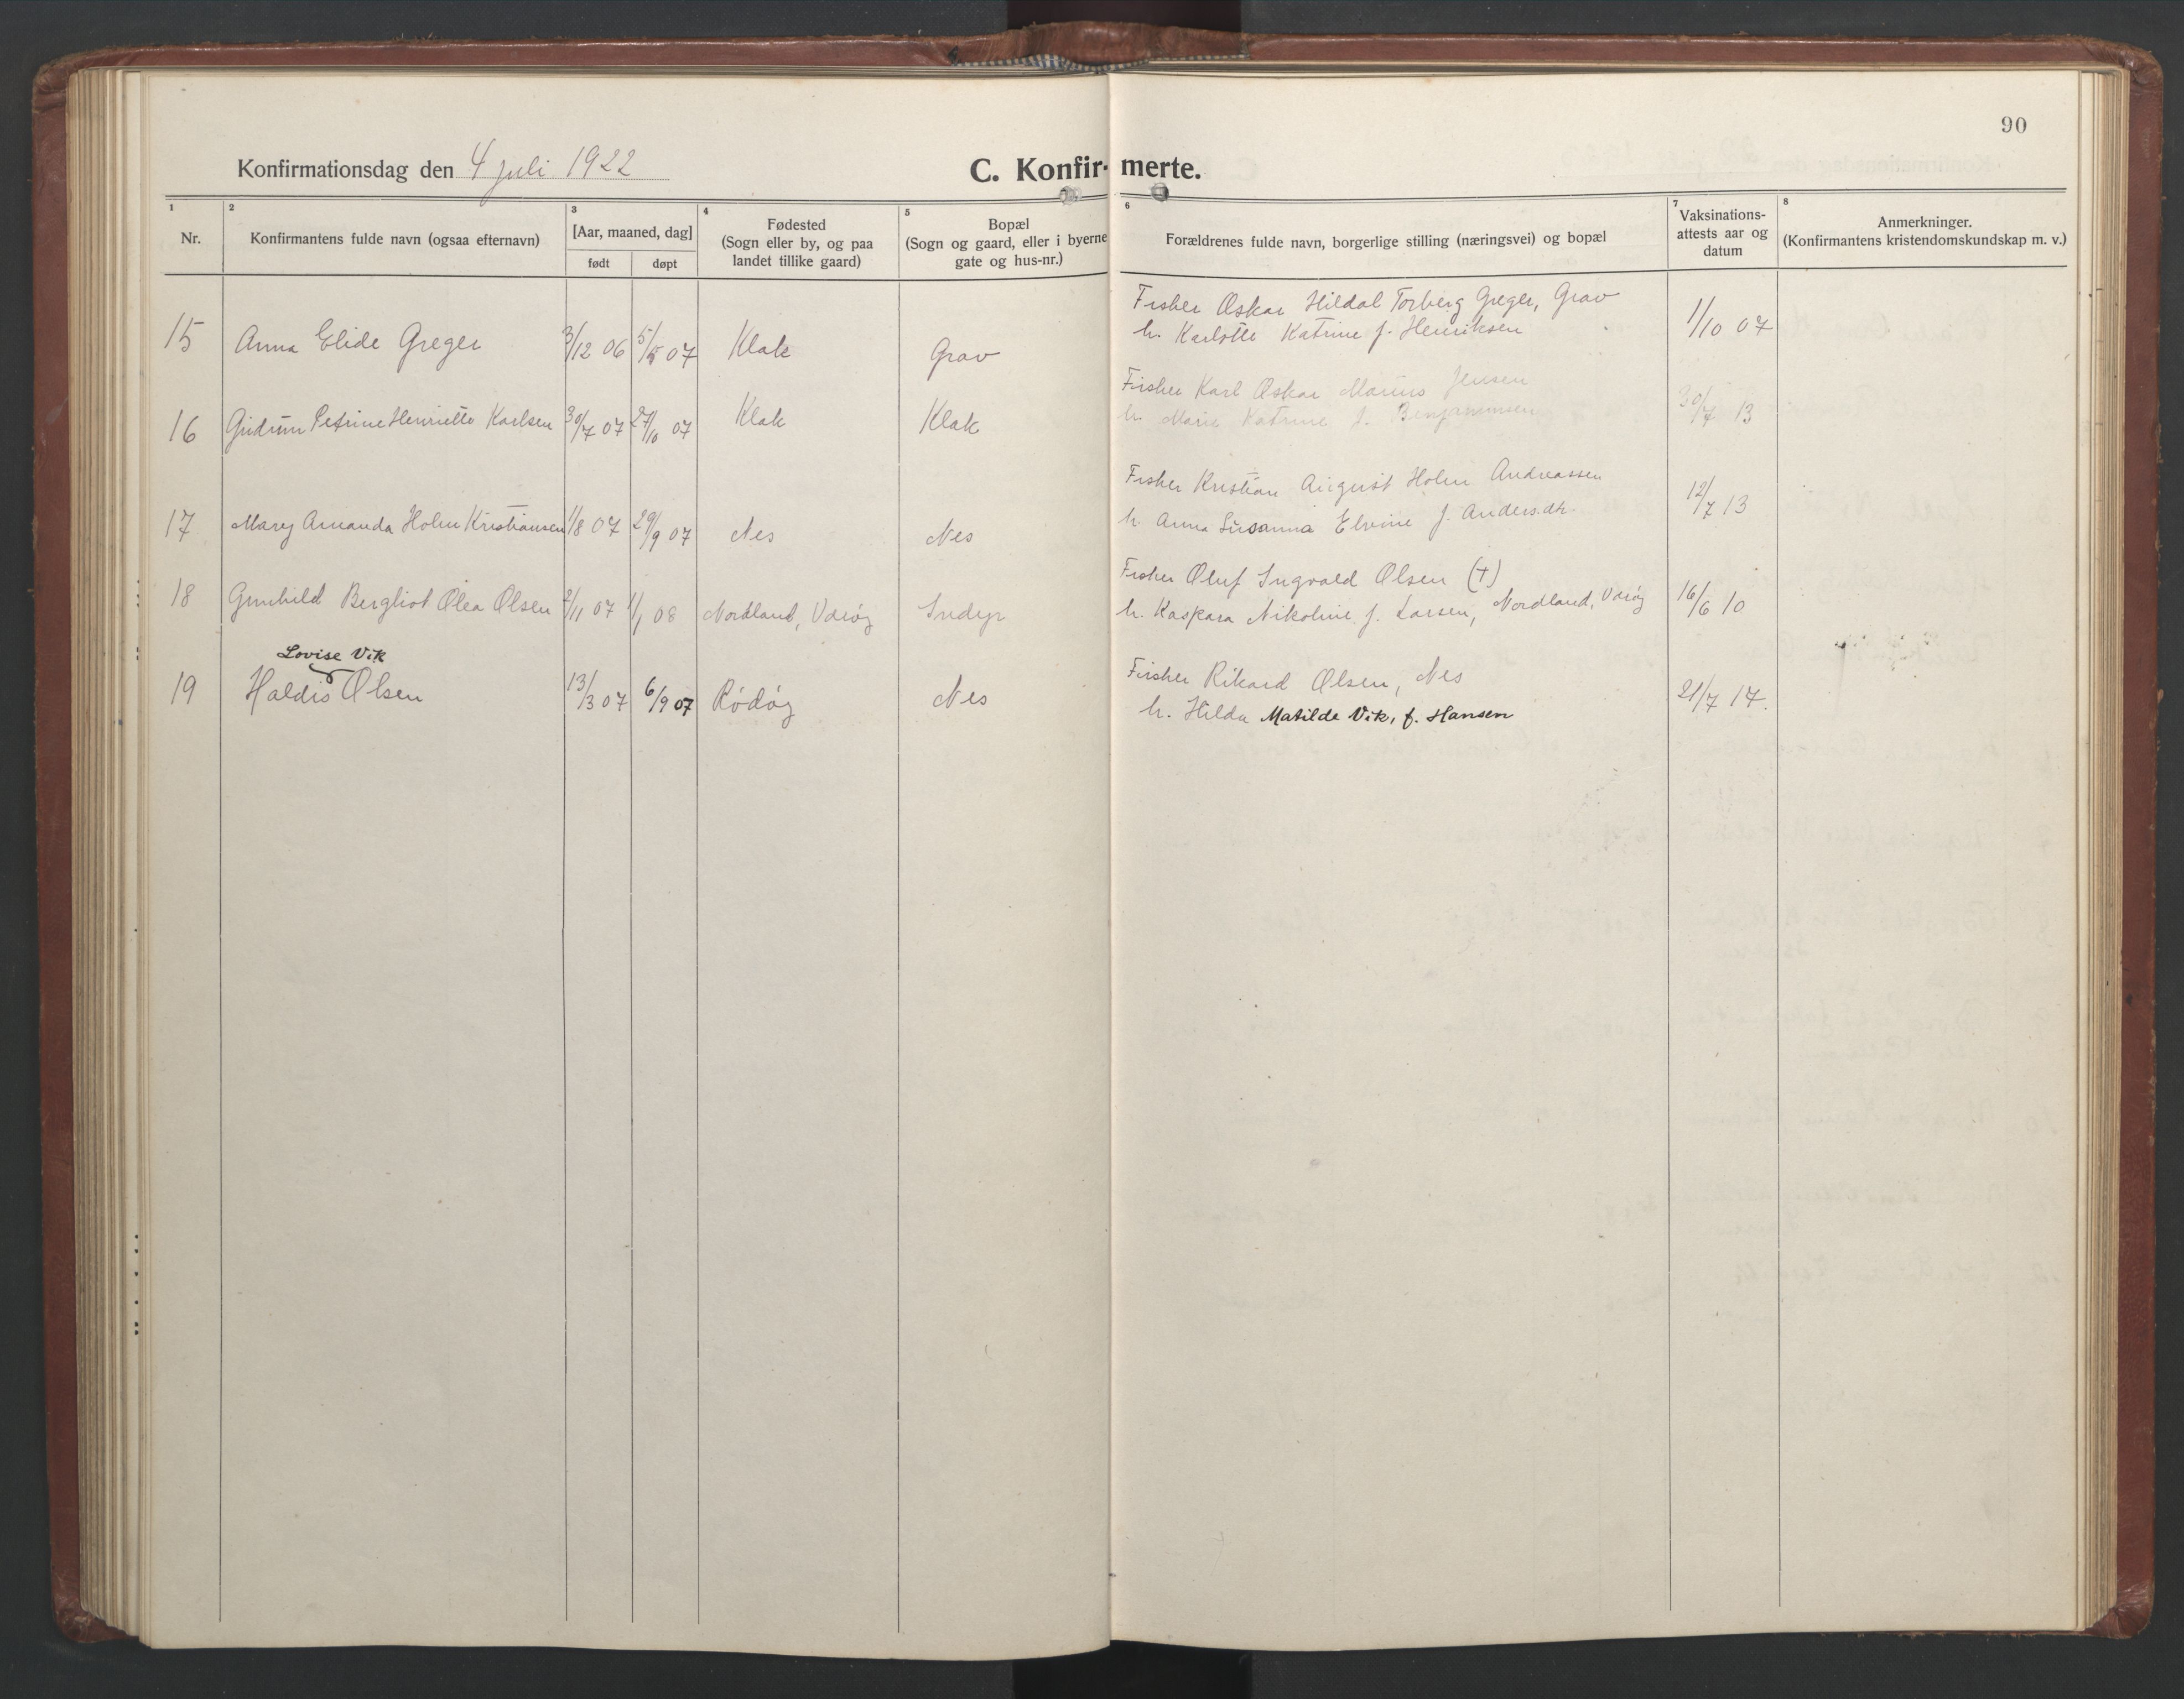 90
Konfirmationsdag den 4 juli 1922
C. Konfirmerte.
1 2 3 4 5 6 7 8
Nr.
Konfirmantens fulde navn (ogsaa efternavn)
[Aar, maaned, dag]
født døpt
Fødested
(Sogn eller by, og paa
landet tillike gaard)
Bopæl
(Sogn og gaard, eller i byerne
gate og hus-nr.)
Forældrenes fulde navn, borgerlige stilling (næringsvei) og bopæl
Vaksinations-
attests aar og
datum
Anmerkninger.
(Konfirmantens kristendomskundskap m. v.)
Fisker Oskar Hildal Torberg Greger, Grav
15 Anna Elide Greger 3/12 06 5/5 07 Klak Grav h. Karlotte Katrine f. Henriksen 1/10 07
Fisker Karl Oskar Marius Jensen
16 Gudrun Petrine Henriette Karlsen 30/7 07 27/10 07 Klak Klak h. Marie Katrine f. Benjaminsen 30/7 13
Fisker Kristian August Holm Andreassen
17 Mary Amanda Holm Kristiansen 1/8 07 29/9 07 Nes Nes h. Anna Susanna Elvine f. Anders.dtr. 12/7 13
Fisker Oluf Ingvald Olsen (+)
18 Gunhild Bergliot Olea Olsen 2/11 07 1/1 08 Nordland, Værøy Indyr h. Kaspara Nikoline f. Larsen, Nordland, Værøy 16/6 10
Lovise Vik
Fisker Rikard Olsen, Nes
19 Haldis Olsen 13/3 07 6/9 07 Rödöy Nes h. Hilda Matilde Vik, f. Hansen 21/7 17.